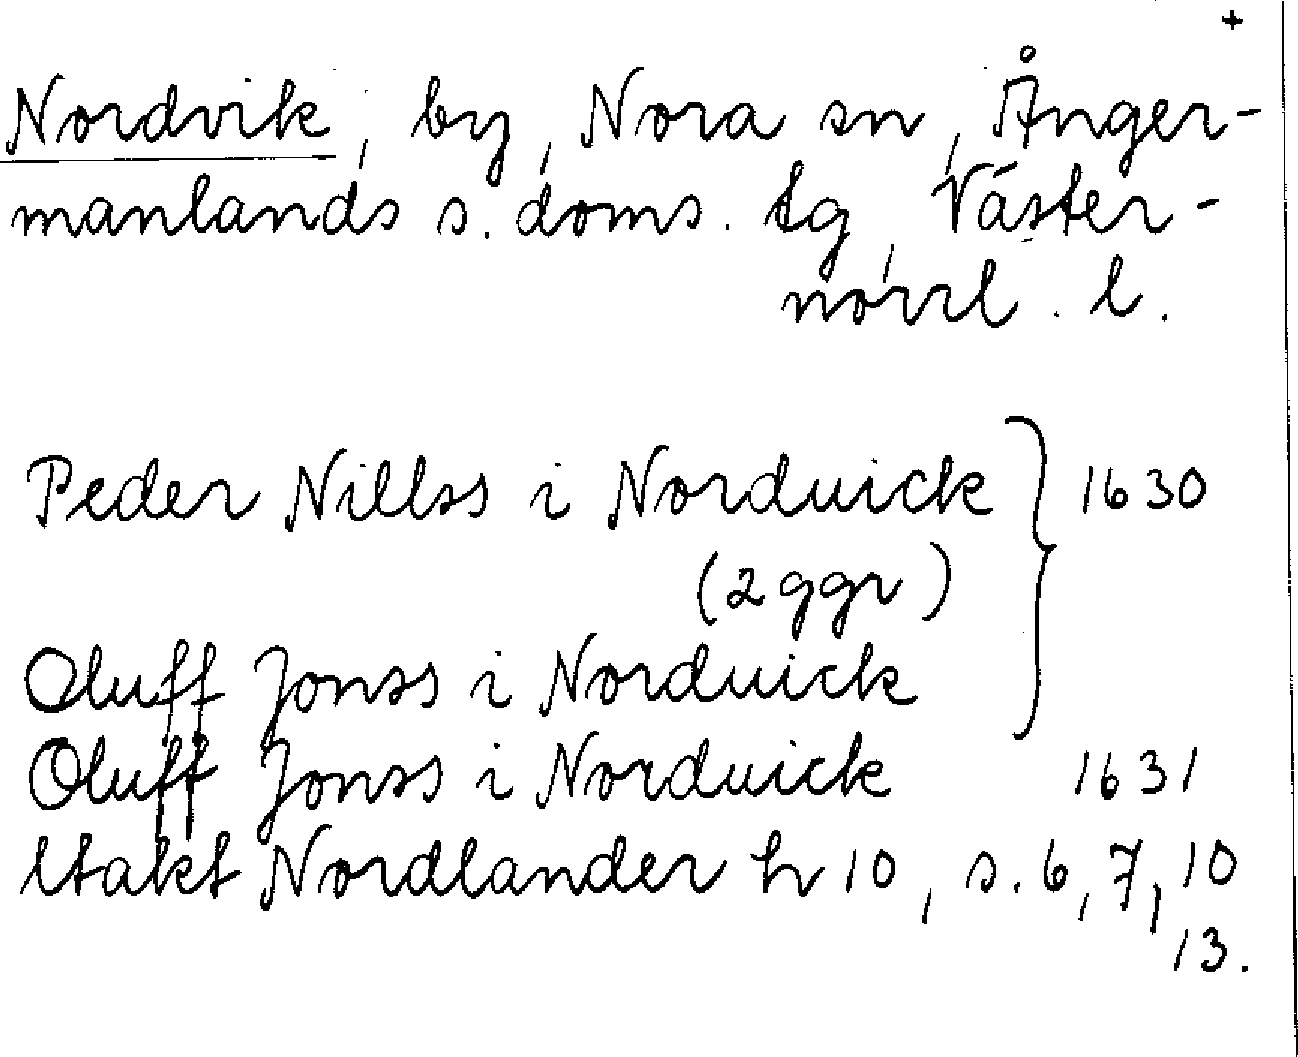 +
Nordvik, by, Nora sn, Ånger-
manlands s. doms. tg, Väster-
norrl. l.
Peder Nillss i Norduick } 1630
(2 ggr)
Oluff Jonss i Norduick
Oluff Jonss i Norduick 1631
Utakt Nordlander h 10, s. 6, 7, 10
13.